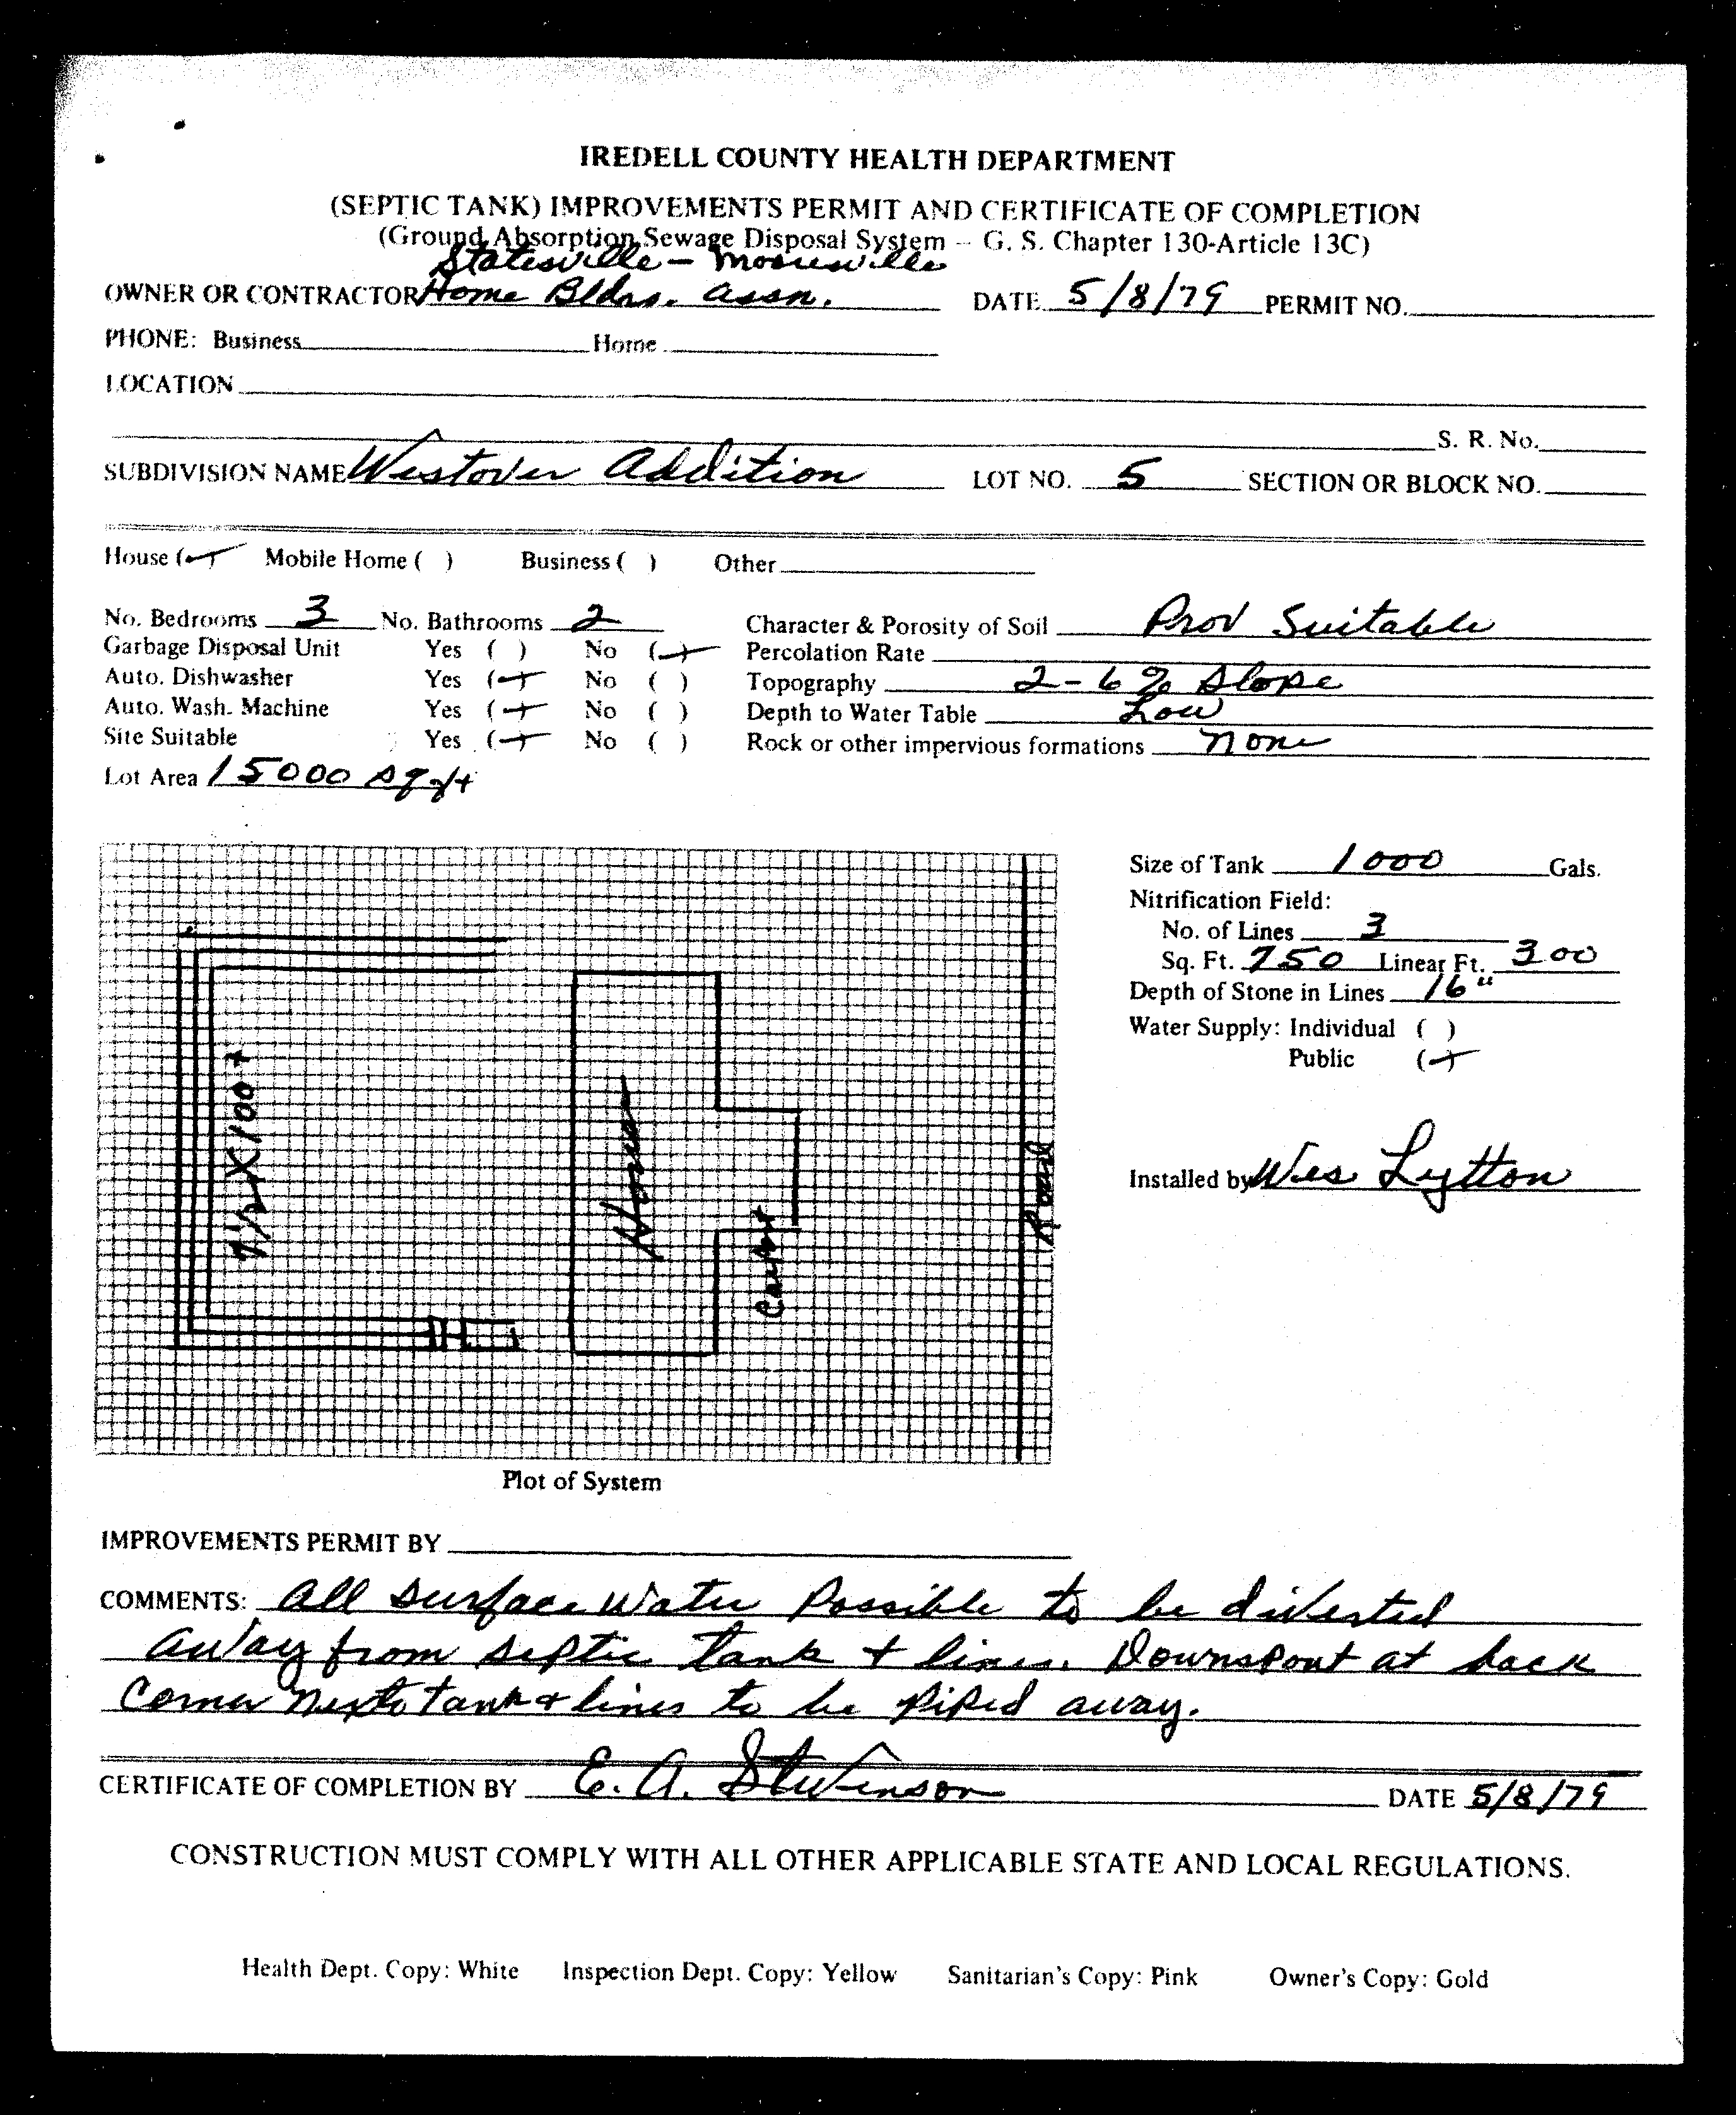 IREDELL COUNTY HEALTH DEPARTMENT
(SEPTIC TANK) IMPROVEMENTS PERMIT AND CERTIFICATE OF COMPLETION
(Ground Absorption Sewage Disposal System - G. S. Chapter 130-Article 13C)
Statesville - Mooresville
OWNER OR CONTRACTOR Home Bldrs. Assn. DATE 5/8/79 PERMIT NO.
PHONE: Business Home
LOCATION
S. R. No.
SUBDIVISION NAME Westover Addition LOT NO. 5 SECTION OR BLOCK NO.
House ( ) Mobile Home ( ) Business ( ) Other
No. Bedrooms 3 No. Bathrooms 2 Character & Porosity of Soil Prov Suitable
Garbage Disposal Unit Yes ( ) No ( ) Percolation Rate
Auto. Dishwasher Yes ( ) No ( ) Topography 2-6% Slope
Auto. Wash. Machine Yes ( ) No ( ) Depth to Water Table Low
Site Suitable Yes ( ) No ( ) Rock or other impervious formations None
Lot Area 15000 sq ft
Size of Tank 1000 Gals.
Nitrification Field:
No. of Lines 3
Sq. Ft. 750 Linear Ft. 300
Depth of Stone in Lines 16"
Water Supply: Individual ( )
Public ( )
Installed by Wes Lytton
House
Carport
Road
Plot of System
IMPROVEMENTS PERMIT BY
COMMENTS: All surface water possible to be diverted
away from septic tank + lines. Downspout at back
corner next to tank & lines to be piped away.
CERTIFICATE OF COMPLETION BY E. A. Stevenson DATE 5/8/79
CONSTRUCTION MUST COMPLY WITH ALL OTHER APPLICABLE STATE AND LOCAL REGULATIONS.
Health Dept. Copy: White Inspection Dept. Copy: Yellow Sanitarian's Copy: Pink Owner's Copy: Gold